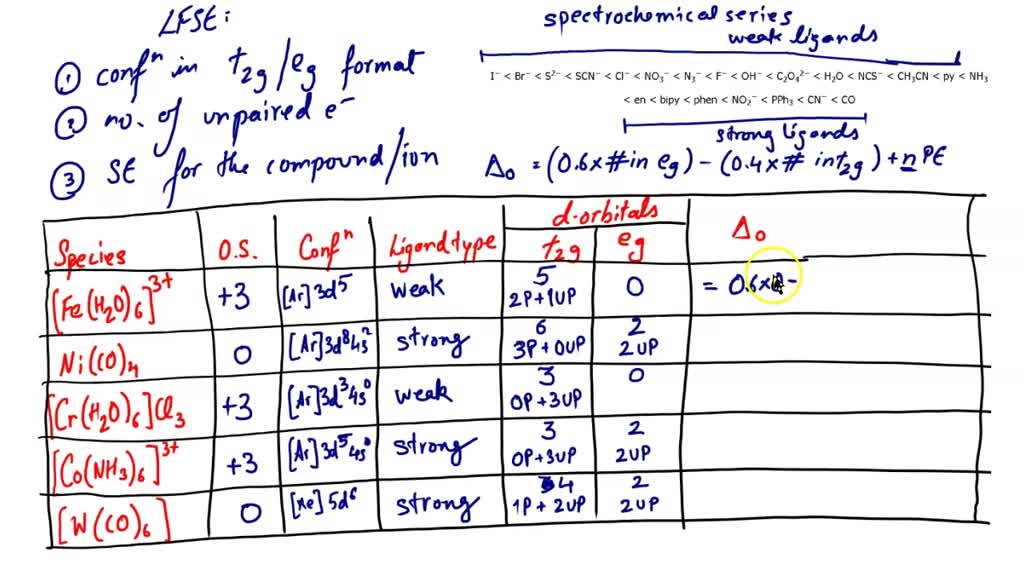 LFSE:
① confⁿ in t2g/eg format
② no. of unpaired e⁻
③ SE for the compound/ion
spectrochemical series
weak ligands
I⁻ < Br⁻ < S²⁻ < SCN⁻ < Cl⁻ < NO₃⁻ < N₃⁻ < F⁻ < OH⁻ < C₂O₄²⁻ < H₂O < NCS⁻ < CH₃CN < py < NH₃
< en < bipy < phen < NO₂⁻ < PPh₃ < CN⁻ < CO
strong ligands
Δ₀ = (0.6×# in eg) − (0.4×# in t2g) + nPE
d-orbitals
Species O.S. Confⁿ Ligand type t2g eg Δ₀
[Fe(H₂O)₆]³⁺ +3 [Ar]3d⁵ weak 5 2P+1UP 0 = 0.6× −
Ni(CO)₄ 0 [Ar]3d⁸4s² strong 6 3P+0UP 2 2UP
[Cr(H₂O)₆]Cl₃ +3 [Ar]3d³4s⁰ weak 3 0P+3UP 0
[Co(NH₃)₆]³⁺ +3 [Ar]3d⁵4s⁰ strong 3 0P+3UP 2 2UP
[W(CO)₆] 0 [Xe]5d⁶ strong 4 1P+2UP 2 2UP